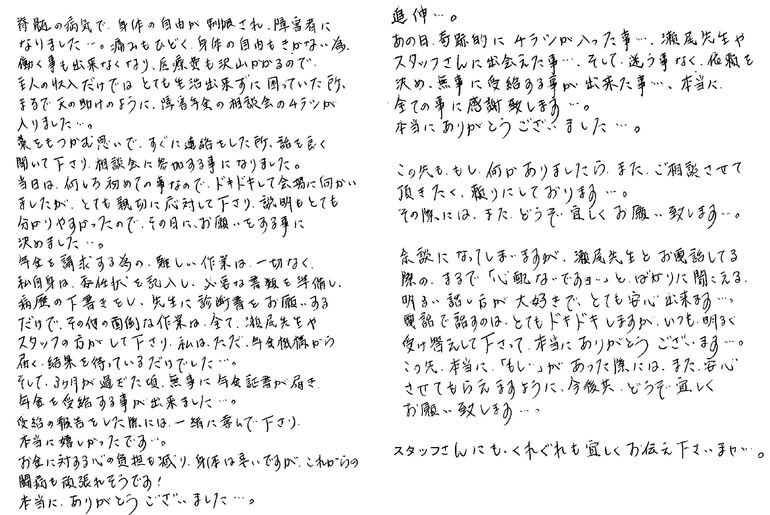 脊髄の病気で、身体の自由が制限され、障害者に
なりました…。痛みもひどく、身体の自由もきかない為、
働く事も出来なくなり、医療費も沢山かかるので、
主人の収入だけでは とても生活出来ずに困っていた所、
まるで天の助けのように、障害年金の相談会のチラシが
入りました…。
藁をもつかむ思いで、すぐに連絡をした所、話を良く
聞いて下さり、相談会に参加する事になりました。
当日は、何しろ初めての事なので、ドキドキして会場に向かい
ましたが、とても親切に応対して下さり、説明もとても
分かりやすかったので、その日に、お願いをする事に
決めました…。
年金を請求する為の、難しい作業は、一切なく、
私自身は、委任状を記入し、必要な書類を準備し、
病歴の下書きをし、先生に診断書をお願いする
だけで、その他の面倒な作業は、全て、瀬尾先生や
スタッフの方がして下さり、私は、ただ、年金機構から
届く、結果を待っているだけでした…。
そして、3ヶ月が過ぎた頃、無事に年金証書が届き、
年金を受給する事が出来ました…。
受給の報告をした際には、一緒に喜んで下さり、
本当に嬉しかったです…。
お金に対する心の負担も減り、身体は辛いですが、これからの
闘病も頑張れそうです!
本当に、ありがとうございました…。
追伸…。
あの日、奇跡的にチラシが入った事…、瀬尾先生や
スタッフさんに出会えた事…、そして、迷う事なく、依頼を
決め、無事に受給する事が出来た事…、本当に、
全ての事に感謝致します…。
本当にありがとうございました…。
この先も、もし、何かありましたら、また、ご相談させて
頂きたく、頼りにしております…。
その際には、また、どうぞ宜しくお願い致します…。
余談になってしまいますが、瀬尾先生とお電話してる
際の、まるで「心配ないですョ…」と、ばかりに聞こえる、
明るい話し方が大好きで、とても安心出来ます…。
電話で話すのは、とてもドキドキしますが、いつも、明るく
受け答えして下さって、本当にありがとうございます…。
この先、本当に、「もし」があった際には、また、安心
させてもらえますように、今後共、どうぞ宜しく
お願い致します…。
スタッフさんにも、くれぐれも宜しくお伝え下さいませ…。